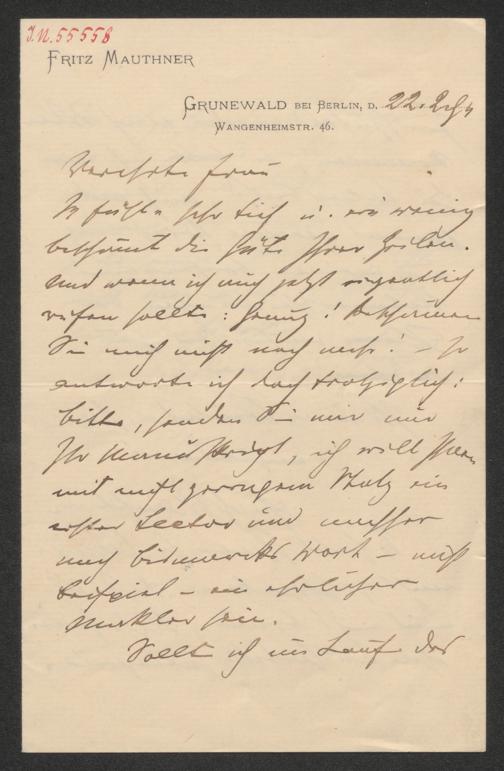 I.N. 55558
FRITZ MAUTHNER
GRUNEWALD BEI BERLIN, D. 22.
WANGENHEIMSTR. 46.
Verehrte Frau
Ich fühle sehr tief u. ein wenig
beschämt die Güte Ihrer Zeilen.
Und wenn ich auch jetzt eigentlich
rufen sollte: Genug! Beschämen
Sie mich nicht noch mehr! – So
antworte ich doch
bitte, senden Sie mir nur
Ihr Manuskript, ich will Ihnen
mit nicht geringem Stolz ein
erster Lector und
nach Bismarcks Wort – nicht
Beispiel – ein ehrlicher
Makler sein.
Sollte ich im Lauf des